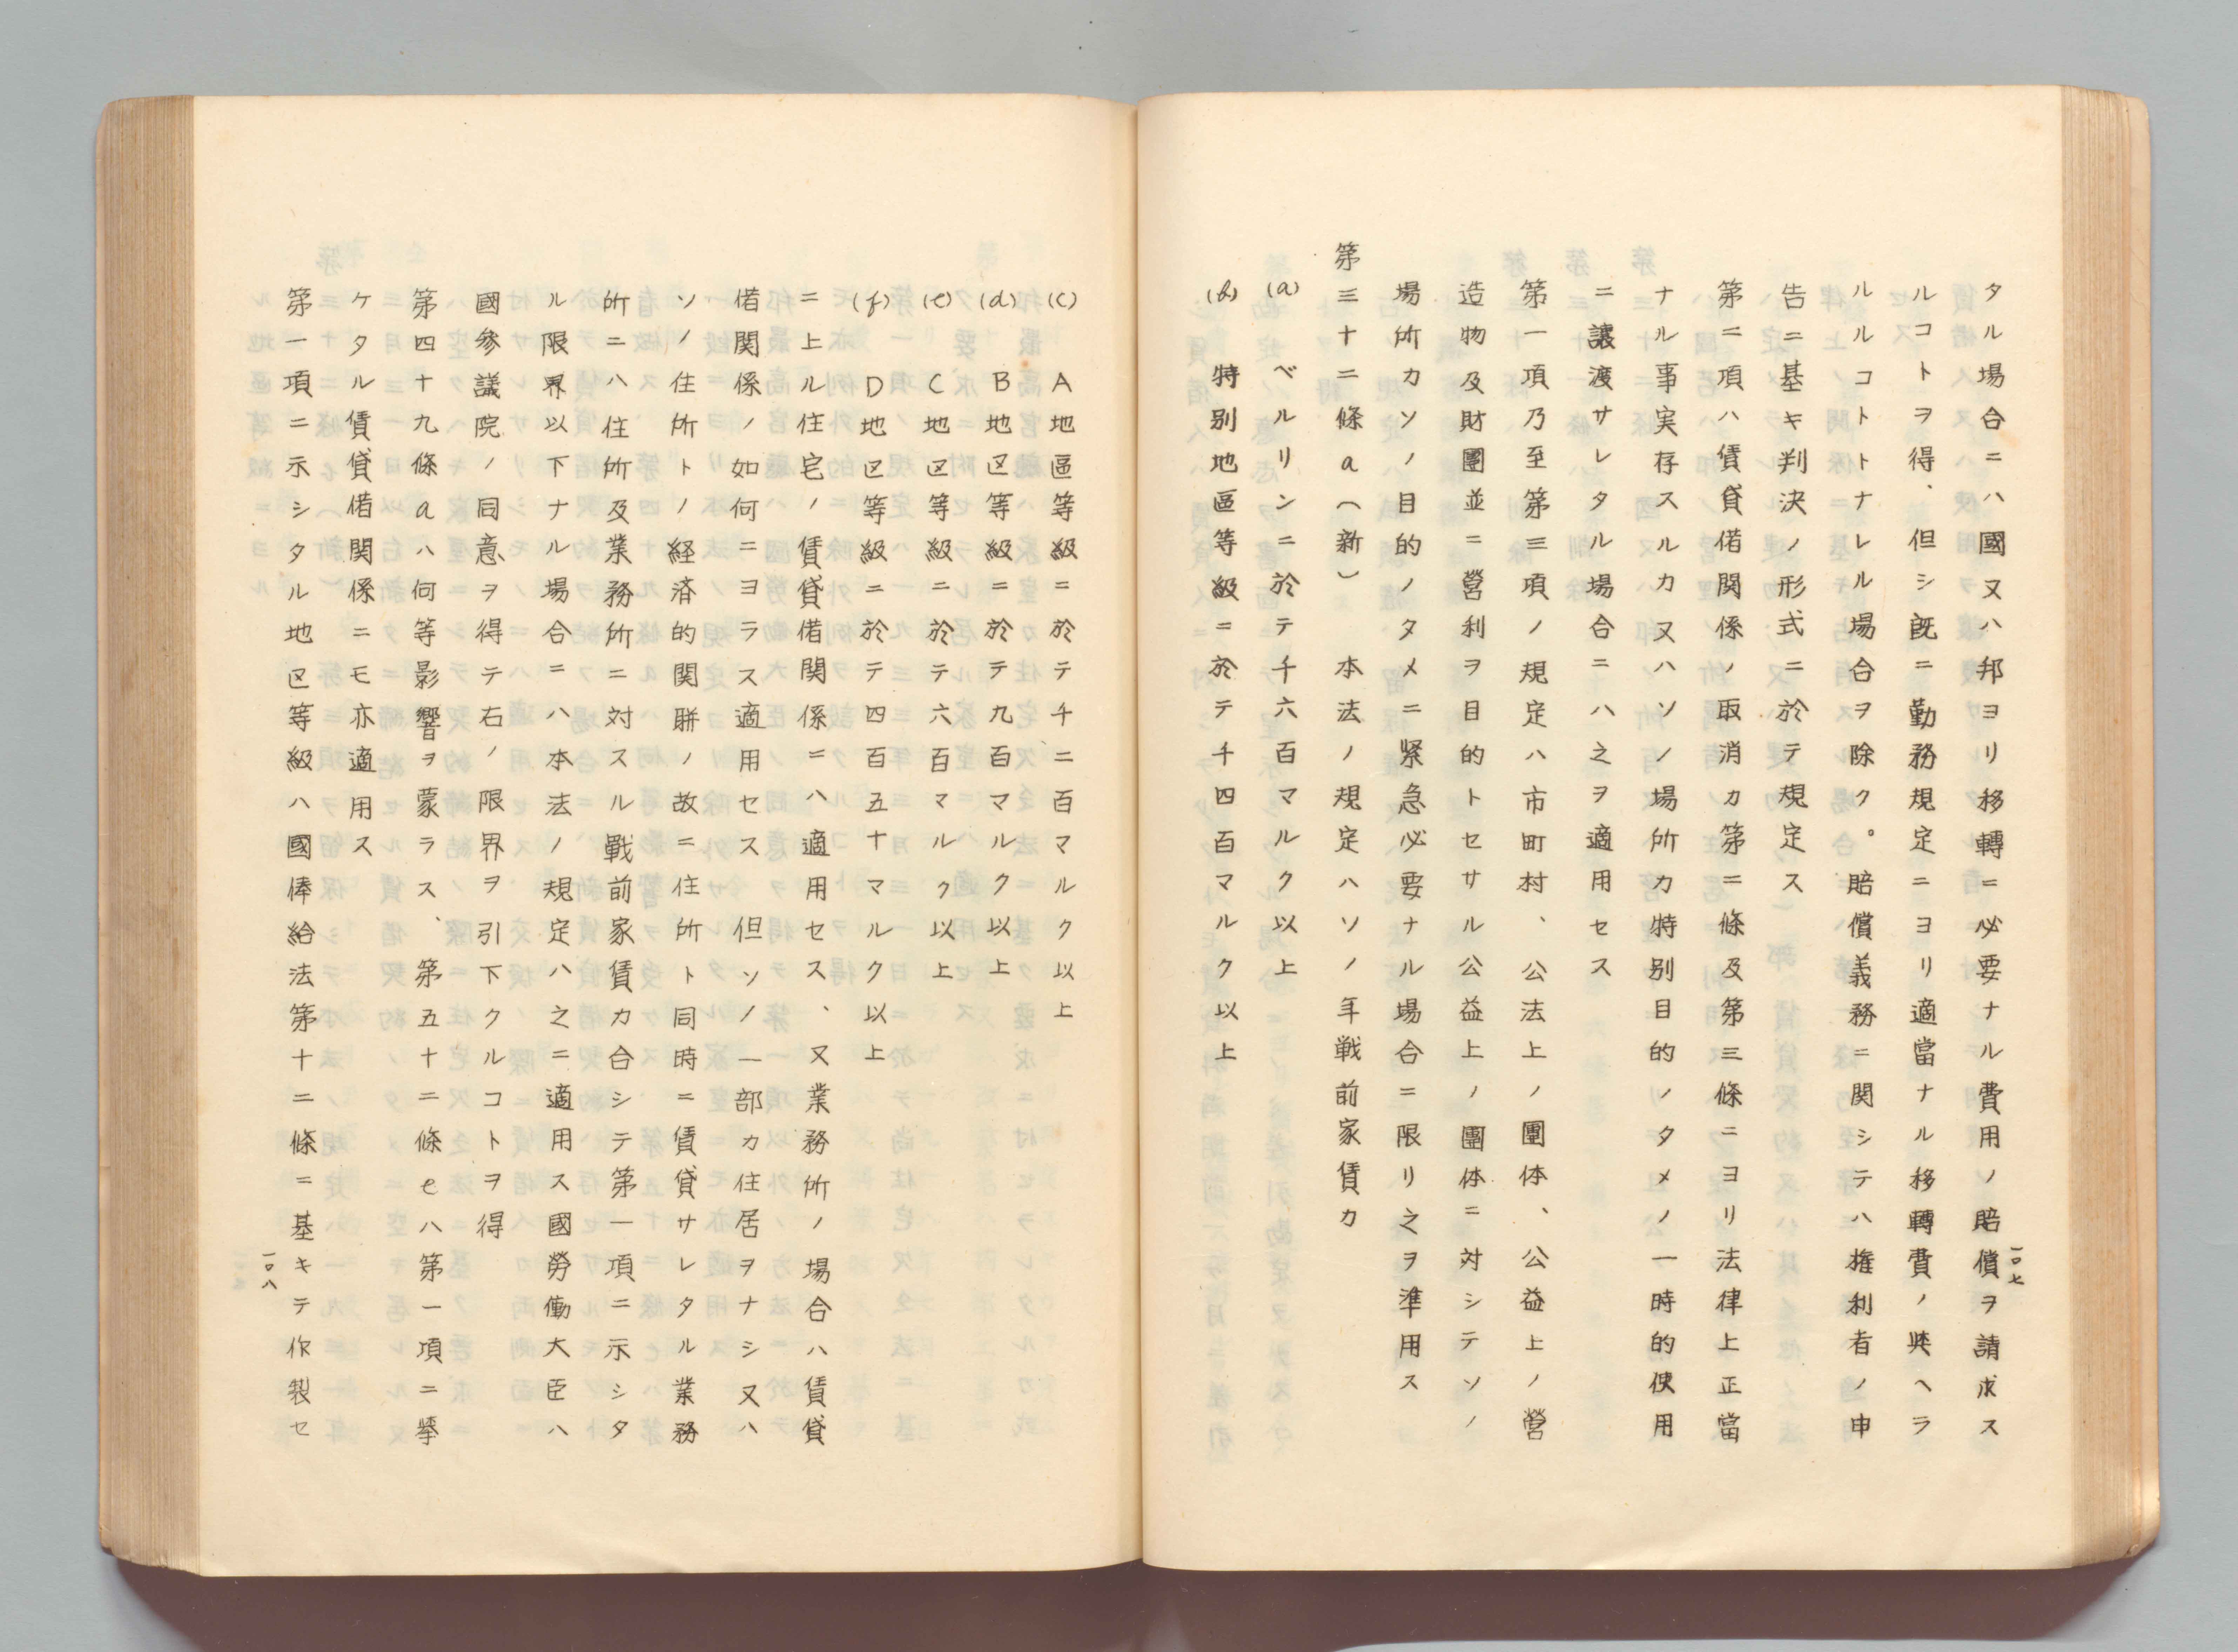 タル場合ニハ國又ハ邦ヨリ移轉ニ必要ナル費用ノ賠償ヲ請求ス
ルコトヲ得、但シ既ニ勤務規定ニヨリ適當ナル移轉費ノ與ヘラ
ルルコトトナレル場合ヲ除ク。賠償義務ニ関シテハ権利者ノ申
告ニ基キ判決ノ形式ニ於テ規定ス
第二項ハ賃貸借関係ノ取消カ第二條及第三條ニヨリ法律上正當
ナル事実存スルカ又ハソノ場所カ特別目的ノタメノ一時的使用
ニ讓渡サレタル場合ニハ之ヲ適用セス
第一項乃至第三項ノ規定ハ市町村、公法上ノ團体、公益上ノ營
造物及財團並ニ營利ヲ目的トセサル公益上ノ團体ニ対シテソノ
場所カソノ目的ノタメニ緊急必要ナル場合ニ限リ之ヲ準用ス
第三十二條a（新）　本法ノ規定ハソノ年戦前家賃カ
(a)　ベルリンニ於テ千六百マルク以上
(b)　特別地區等級ニ於テ千四百マルク以上
一〇七
(c)　A地區等級ニ於テ千二百マルク以上
(d)　B地区等級ニ於テ九百マルク以上
(e)　C地区等級ニ於テ六百マルク以上
(f)　D地区等級ニ於テ四百五十マルク以上
ニ上ル住宅ノ賃貸借関係ニハ適用セス、又業務所ノ場合ハ賃貸
借関係ノ如何ニヨラス適用セス　但ソノ一部カ住居ヲナシ又ハ
ソノ住所トノ経済的関聯ノ故ニ住所ト同時ニ賃貸サレタル業務
所ニハ住所及業務所ニ対スル戦前家賃カ合シテ第一項ニ示シタ
ル限界以下ナル場合ニハ本法ノ規定ハ之ニ適用ス國勞働大臣ハ
國参議院ノ同意ヲ得テ右ノ限界ヲ引下クルコトヲ得
第四十九條aハ何等影響ヲ蒙ラス、第五十二條eハ第一項ニ擧
ケタル賃貸借関係ニモ亦適用ス
第一項ニ示シタル地区等級ハ國俸給法第十二條ニ基キテ作製セ
一〇八